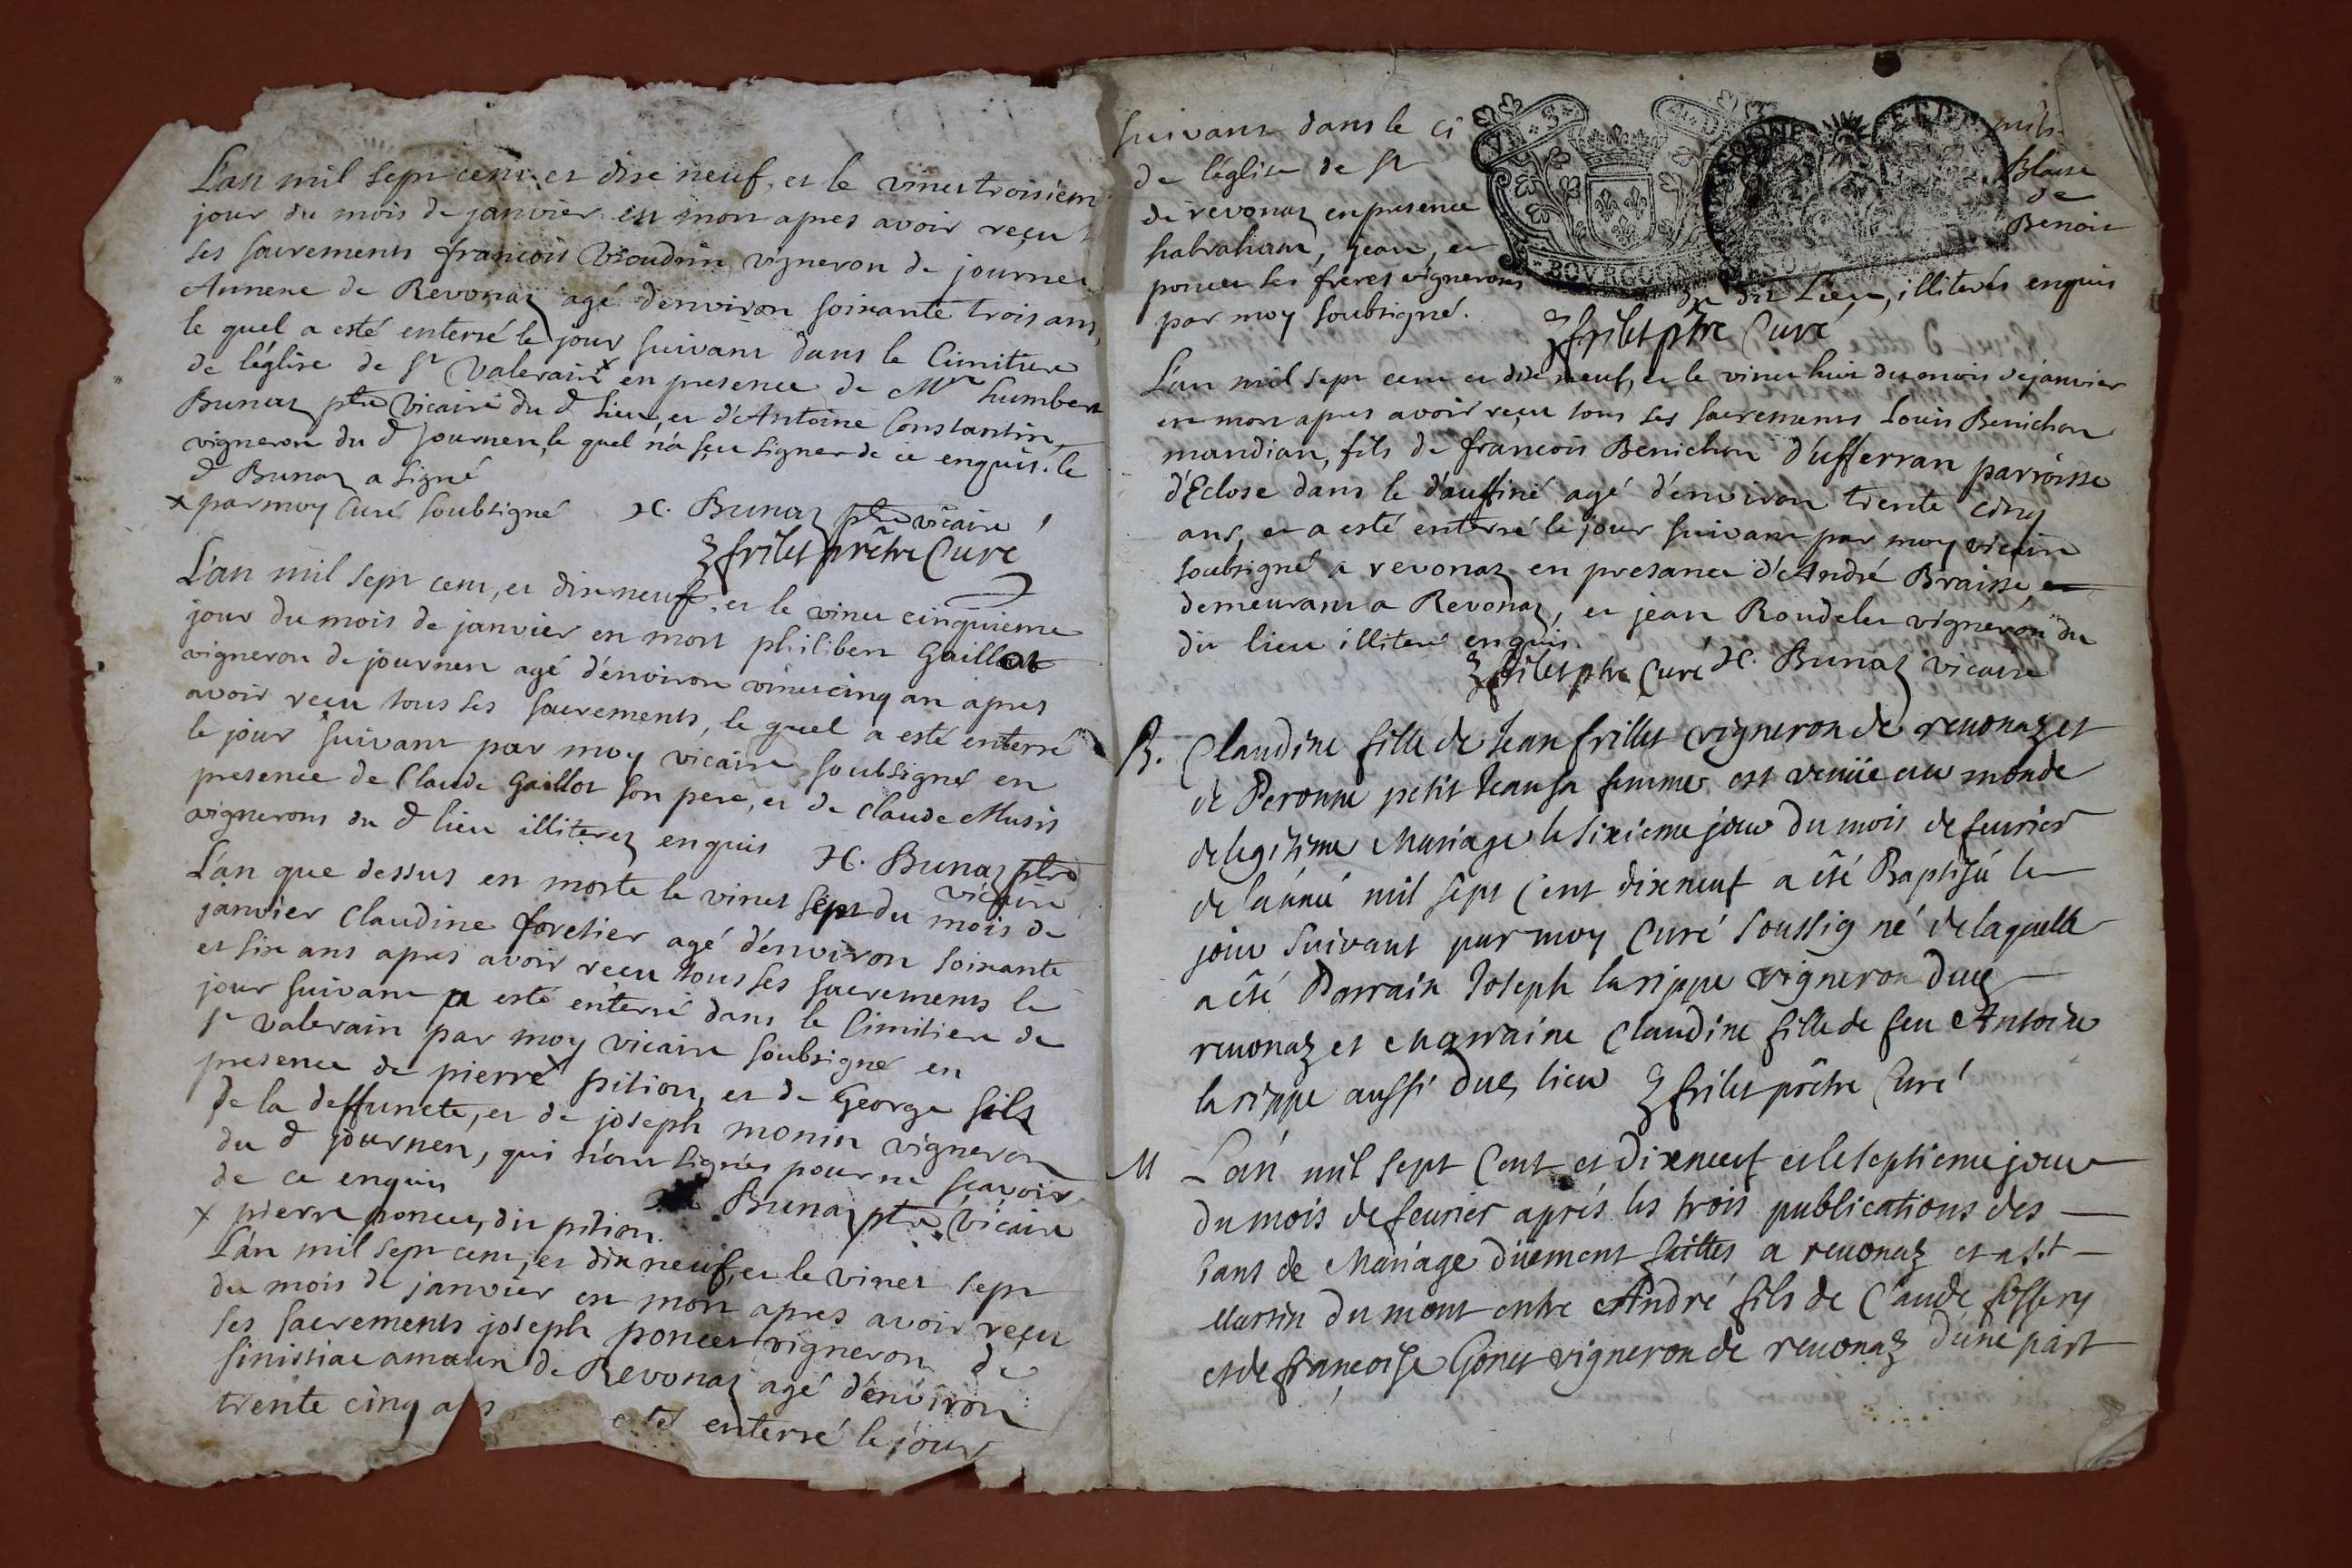 L'an mil sept cent et dixe neuf, et le vinet troisiem
jour du mois de janvier est mort apres avoir reçu
ses sacrements francois Vioudrin vigneron de journen
Annexe de Revonaz agé d'environ soixante trois ans,
le quel a esté enterré le jour suivant dans le Cimitiere
de l'église de st Valerain x en presence de Mre humbert
Bunaz ptre Vicaire du d lieu, et d'Antoine Constantin
vigneron du d journen, le quel n'a sçu signer de ce enquis. le
d Bunaz a signé
x par moy Curé soubsigné H. Bunaz ptre vicaire
frilet prêtre Curé
L'an mil sept cent, et dix neuf, et le vinet cinquieme
jour du mois de janvier en mort philibert Gaillot
vigneron de journen agé d'environ vinet cinq an apres
avoir reçu tous ses sacrements, le quel a esté enterré
le jour suivant par moy vicaire soubsigné en
presence de Claude Gaillot son pere, et de Claude Musis
vignerons du d lieu illiterez enquis H. Bunaz ptre
vicaire
L'an que dessus en morte le vinet sept du mois de
janvier Claudine foretier agé d'environ soixante
et six ans apres avoir reçu tous ses sacrements le
jour suivant a esté enterré dans le Cimitiere de
st Valerain par moy vicaire soubsigné en
presence de pierre x pition, et de George fils
de la deffuncte, et de joseph monin vigneron
du d journen, qui n'ont signés pour ne sçavoir
de ce enquis
Bunaz ptre Vicaire
x pierre poncet, dit pition.
L'an mil sept cent, et dix neuf, et le vinet sept
du mois de janvier en mort apres avoir reçu
ses sacrements joseph poncet vigneron de
de Revonaz agé d'environ
trente cinq ans
esté enterré le jour
suivant dans le ci mit
de l'église de st Blaise
de revonaz en presence de
habraham, jean, et Benoit
poncet ses freres vignerons du dit Lieu, illiterés enquis
par moy soubsigné.
frilet ptre Curé
L'an mil sept cent et dix neuf, et le vinet huit du mois de janvier
en mort apres avoir reçu tous ses sacrements Louis Benichon
mandian, fils de francois Benichon d'ufferran parroisse
d'Eclose dans le d'auffiné agé d'environ trente cinq
ans, et a esté enterré le jour suivant par moy vicaire
soubsigné a revonaz en presance d'André Braisse, et
demeurant a Revonaz, et jean Rondelet vigneron du
dit lieu illiteré enquis.
frilet ptre Curé H. Bunaz vicaire
B. Claudine fille de Jean frillet vigneron de reuonaz et
de Peronne petit Jean sa femme est venüe au monde
de legitime Mariage le sixieme jour du mois de feurier
de l'année mil sept cent dix neuf a êté Baptisée le
jour suivant par moy Curé soussigné de laquelle
a êté Parrain Joseph larippe vigneron dud
reuonaz et Marraine Claudine fille de feu Antoine
larippe aussi dud lieu frilet prêtre Curé
M L'an mil sept Cent et dix neuf et le septieme jour
du mois de feurier aprés les trois publications des
bans de Mariage düement faittes a reuonaz et a st
Martin du mont entre André fils de Claude
et de françoise Gonet vigneron de reuonaz d'une part